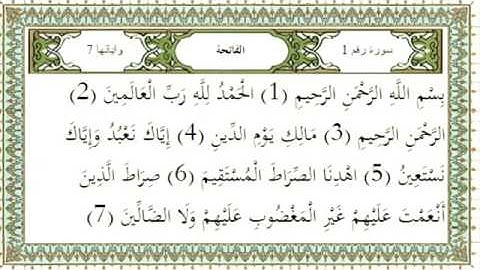 سورة رقم 1 الفاتحة واياتها 7
بِسْمِ اللَّهِ الرَّحْمَنِ الرَّحِيمِ (1) الْحَمْدُ لِلَّهِ رَبِّ الْعَالَمِينَ (2)
الرَّحْمَنِ الرَّحِيمِ (3) مَالِكِ يَوْمِ الدِّينِ (4) إِيَّاكَ نَعْبُدُ وَإِيَّاكَ
نَسْتَعِينُ (5) اهْدِنَا الصِّرَاطَ الْمُسْتَقِيمَ (6) صِرَاطَ الَّذِينَ
أَنْعَمْتَ عَلَيْهِمْ غَيْرِ الْمَغْضُوبِ عَلَيْهِمْ وَلَا الضَّالِّينَ (7)